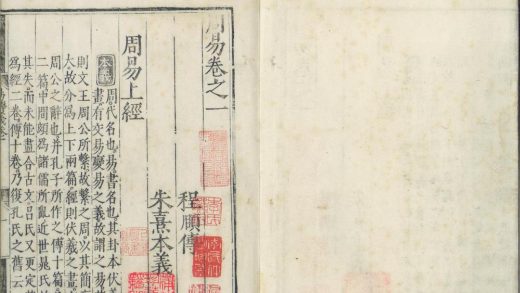 周易卷之一
程頤傳
朱熹本義
周易上經
本義
周代名也易書名也其卦本伏羲
畫有交易變易之義故謂之易
則文王周公所繫故繫之周以其簡
大故分爲上下兩篇經則伏羲之畫
周公之辭也并孔子所作之傳十篇
二篇中間頗爲諸儒所亂近世晁氏
其失而未能盡合古文呂氏又更定
爲經二卷傳十卷乃復孔氏之舊云